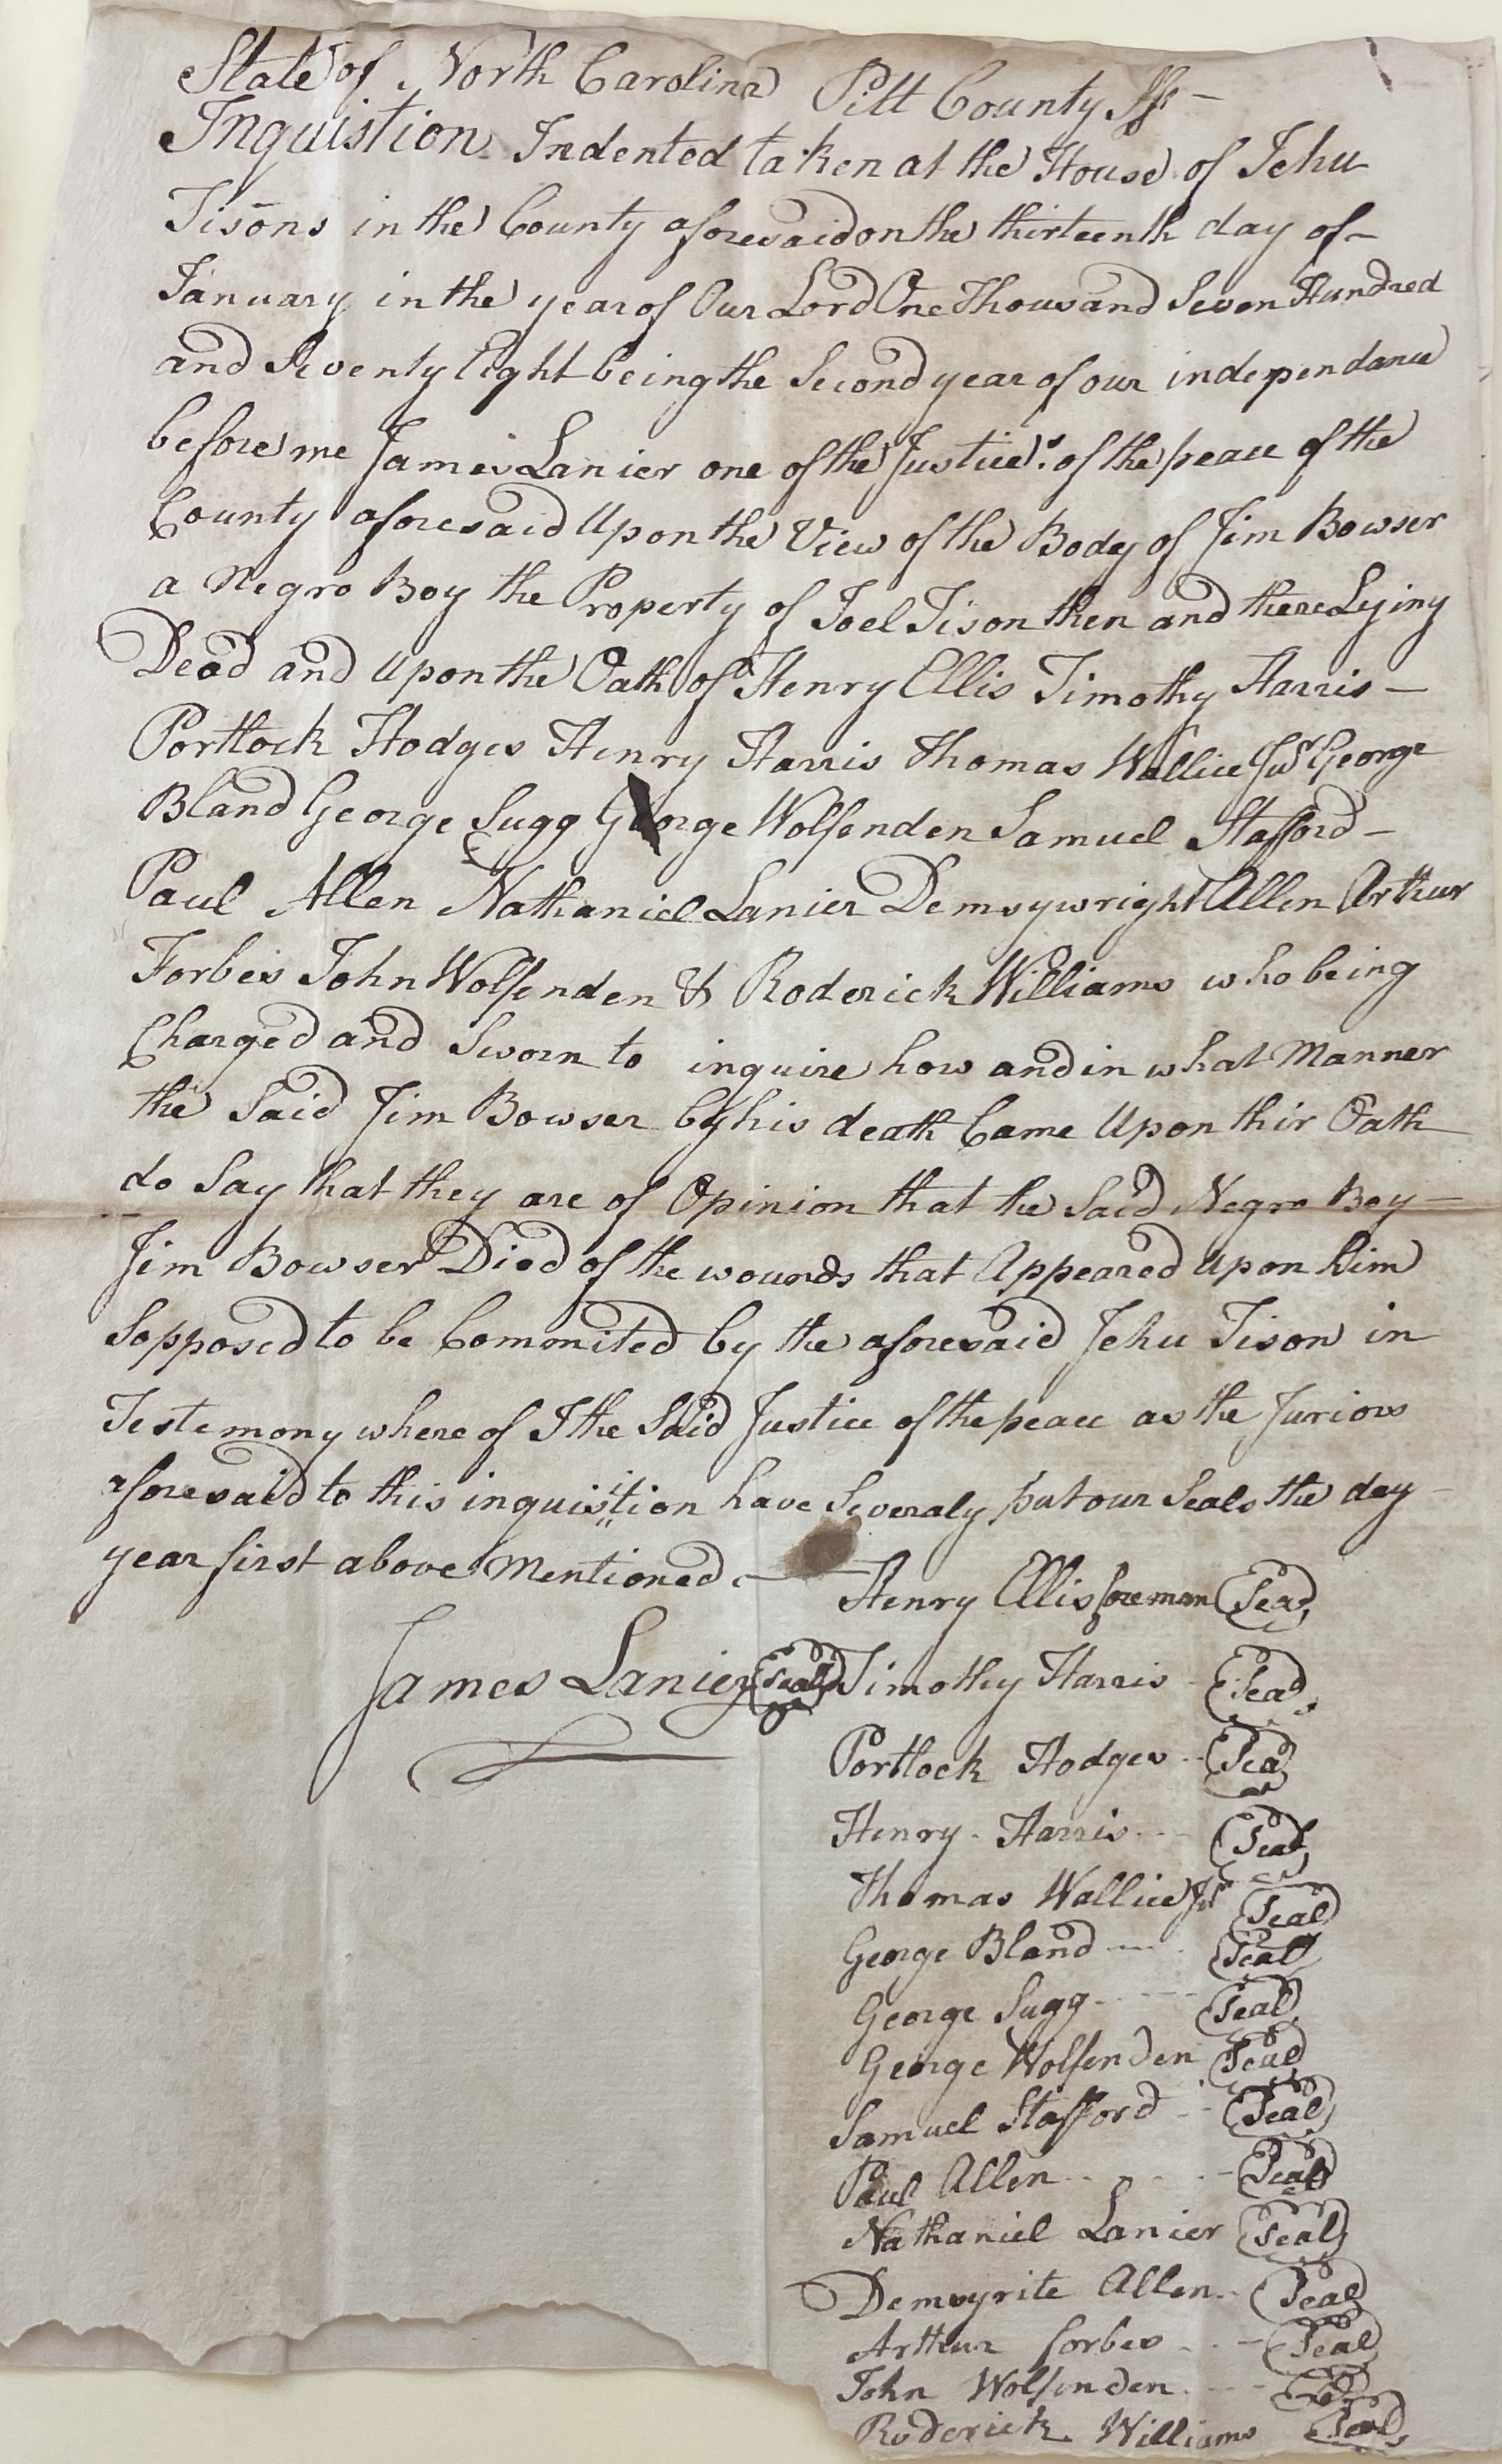 State of North Carolina Pitt County Ss
Inquistion Indented taken at the House of Jehu
Tisons in the County aforesaid on the thirteenth day of
January in the year of Our Lord One Thousand Seven Hundred
and Seventy Eight being the Second year of our independance
before me James Lanier one of the Justice.s of the peace of the
County aforesaid Upon the View of the Body of Jim Bowser
a Negro Boy the Property of Joel Tison then and there Lying
Dead and upon the Oath of Henry Ellis Timothy Harris —
Portlock Hodges Henry Harris Thomas Wallice Jur George
Bland George Sugg George Wolfenden Samuel Stafford —
Paul Allen Nathaniel Lanier Demsywright Allen Arthur
Forbes John Wolfenden & Roderick Williams who being
Charged and Sworn to inquire how and in what Manner
the Said Jim Bowser by his death Came Upon thir Oath
do Say that they are of Opinion that the Said Negro Boy —
Jim Bowser Died of the wounds that Appeared Upon him
Sopposed to be Commited by the aforesaid Jehu Tison in
Testemony where of I the Said Justice of the peace as the Juriors
aforesaid to this inquistion have Severaly put our Seals the day
year first above Mentioned —
Henry Ellis foreman Seal
James Lanier Seal Timothy Harris Seal
Portlock Hodges Seal
Henry Harris Seal
Thomas Wallice Jur Seal
George Bland Seal
George Sugg Seal
George Wolfenden Seal
Samuel Stafford Seal
Paul Allen Seal
Nathaniel Lanier Seal
Demsyrite Allen Seal
Arthur forbes Seal
John Wolfenden Seal
Roderick Williams Seal